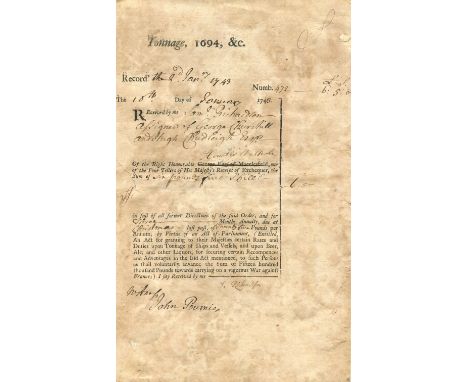 Tonnage, 1694, &c.
Record the 2d Jany 1743
Numb. 472
The 18th Day of January 1746.
REceived by me
Assignee of George Churchill
and Hugh Chudleigh Esqrs
Of the Right Honourable George Earl of Macclesfield, one
of the Four Tellers of His Majesty's Receipt of Exchequer, the
Sum of Six pounds five Shill
in full of all former Directions of the said Order, and for
Three Months Annuity, due at
Christmas last past, of Pounds per
Annum, by Virtue of an Act of Parliament, Entitled,
An Act for granting to their Majesties certain Rates and
Duties upon Tonnage of Ships and Vessels, and upon Beer,
Ale, and other Liquors, for securing certain Recompences
and Advantages in the said Act mentioned, to such Persons
as shall voluntarily advance the Sum of Fifteen hundred
thousand Pounds towards carrying on a vigorous War against
France; I say Received by me
John